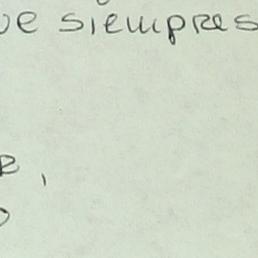 ue siempres
e,
o